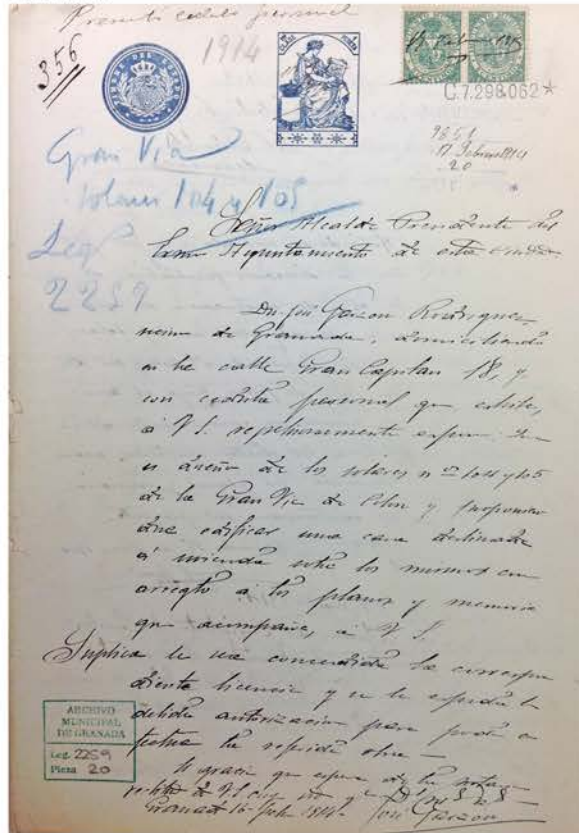 Presentó cedula personal
356
1914
CLASE
C.7.298,062*
9851
17 Febrero 1914
20
Gran Via
solares 104 y 105
Leg.º
2259
Señor Alcalde Presidente del
Excmo Ayuntamiento de esta Ciudad
Dn José Garzon Rodriguez,
vecino de Granada, domiciliado
en la calle Gran Capitan 18, y
con cedula personal que exhibe,
á V.S. respetuosamente expone: Que
es dueño de los solares nos 104 y 105
de la Gran Via de Colon y proponien
dose edificar una casa destinada
á vivienda sobre los mismos con
arreglo á los planos y memoria
que acompaña, á V.S.
Suplica le sea concedida la correspon
diente licencia y se le expida la
debida autorizacion para poder
la referida obra -
gracia que espera de la
de V.S.
Granada 16 Feb. 1914 - José Garzon
ARCHIVO
MUNICIPAL
DE GRANADA
Leg. 2259
Pieza 20